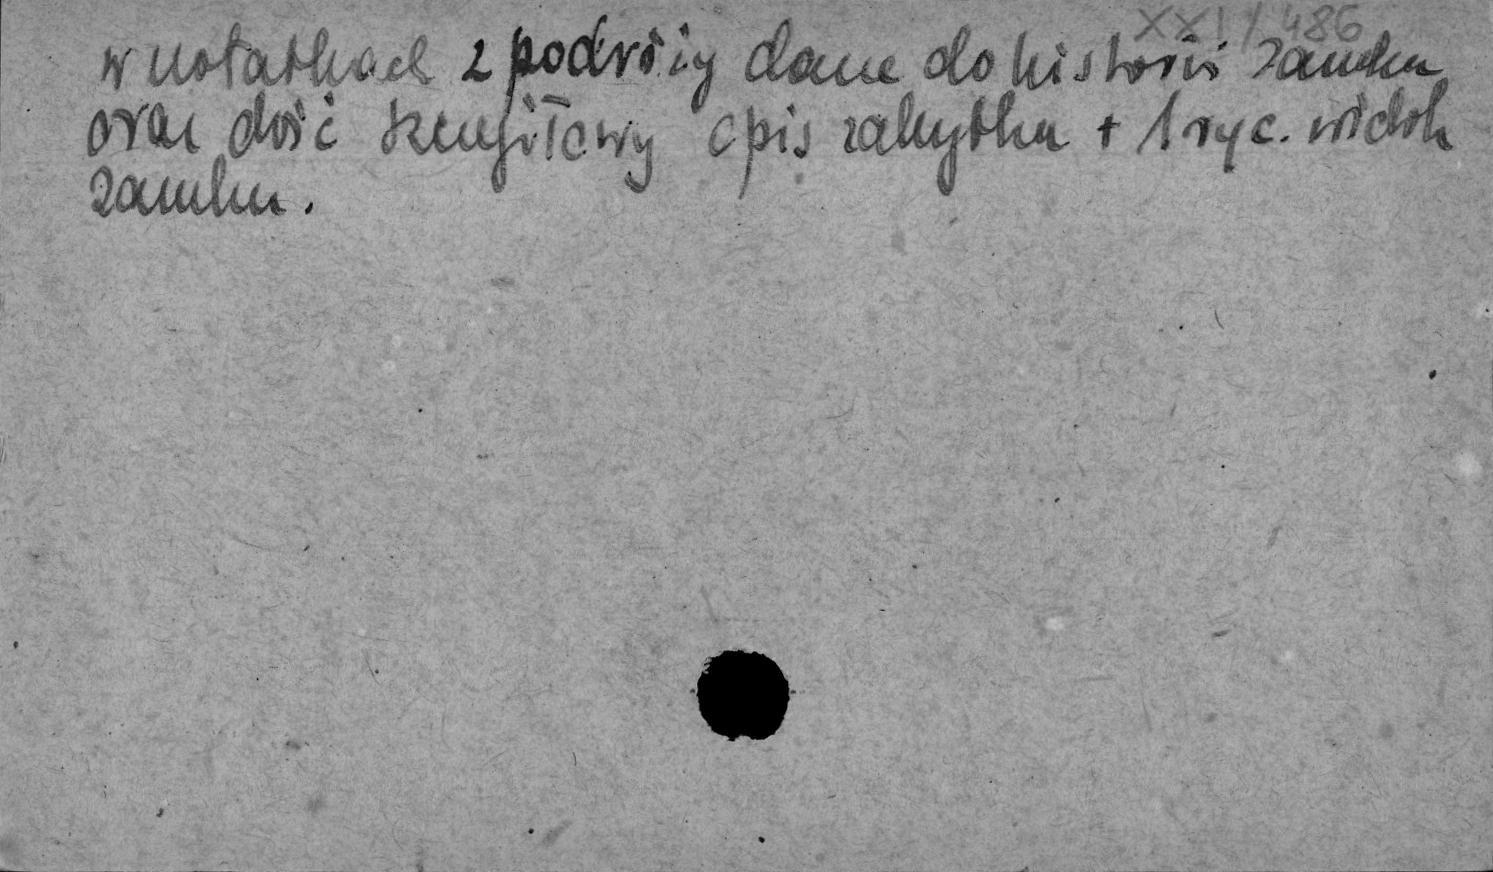 XXI/486
w notatkach z podróży dane do historii zamku
oraz dość szczegółowy opis zabytku + 1 ryc. widok
zamku.